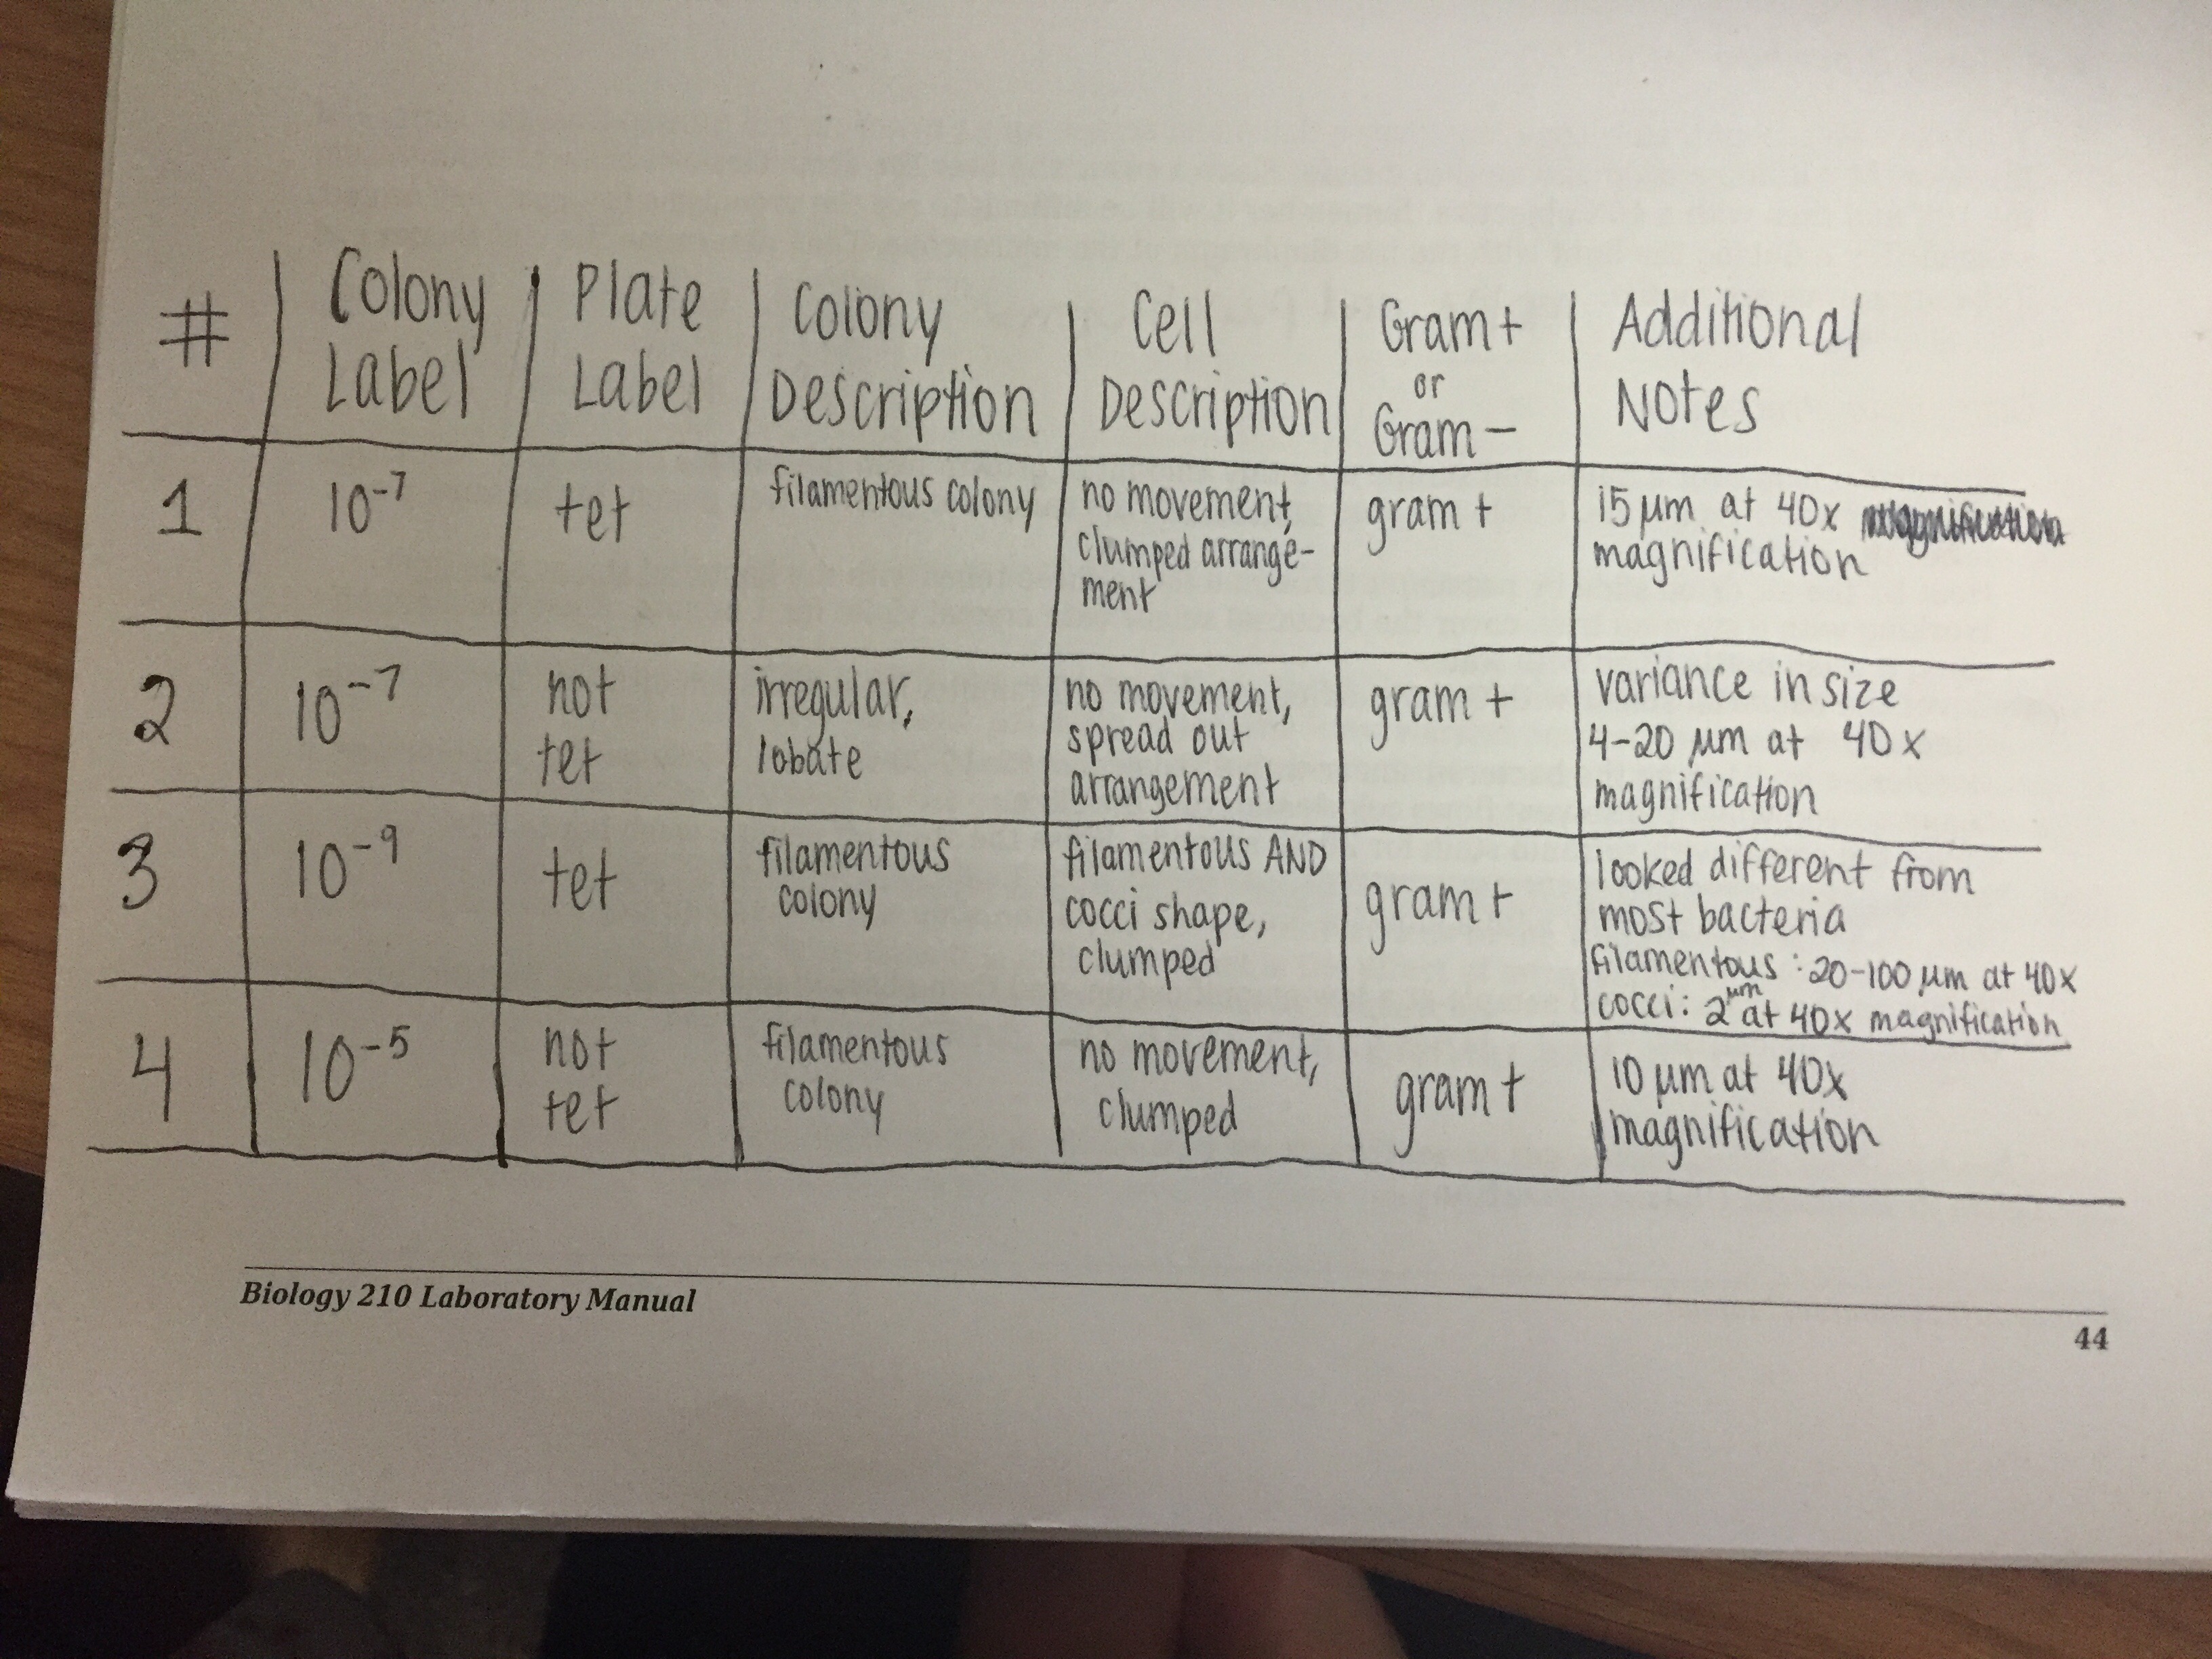 # Colony Label Plate Label Colony Description Cell Description Gram + or Gram - Additional Notes
1 10⁻⁷ tet filamentous colony no movement, clumped arrange-ment gram + 15 µm at 40x magnification
2 10⁻⁷ not tet irregular, lobate no movement, spread out arrangement gram + variance in size 4-20 µm at 40x magnification
3 10⁻⁹ tet filamentous colony filamentous AND cocci shape, clumped gram + looked different from most bacteria filamentous: 20-100 µm at 40x cocci: 2 µm at 40x magnification
4 10⁻⁵ not tet filamentous colony no movement, clumped gram + 10 µm at 40x magnification
Biology 210 Laboratory Manual
44